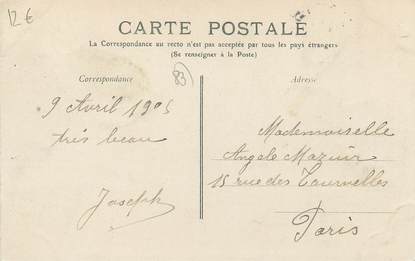 12€
CARTE POSTALE
La Correspondance au recto n'est pas acceptée par tous les pays étrangers
(Se renseigner à la Poste)
Correspondance
83
Adresse
9 Avril 1905
très beau
Joseph
Mademoiselle
Angele Mazuir
15 rue des Tournelles
Paris